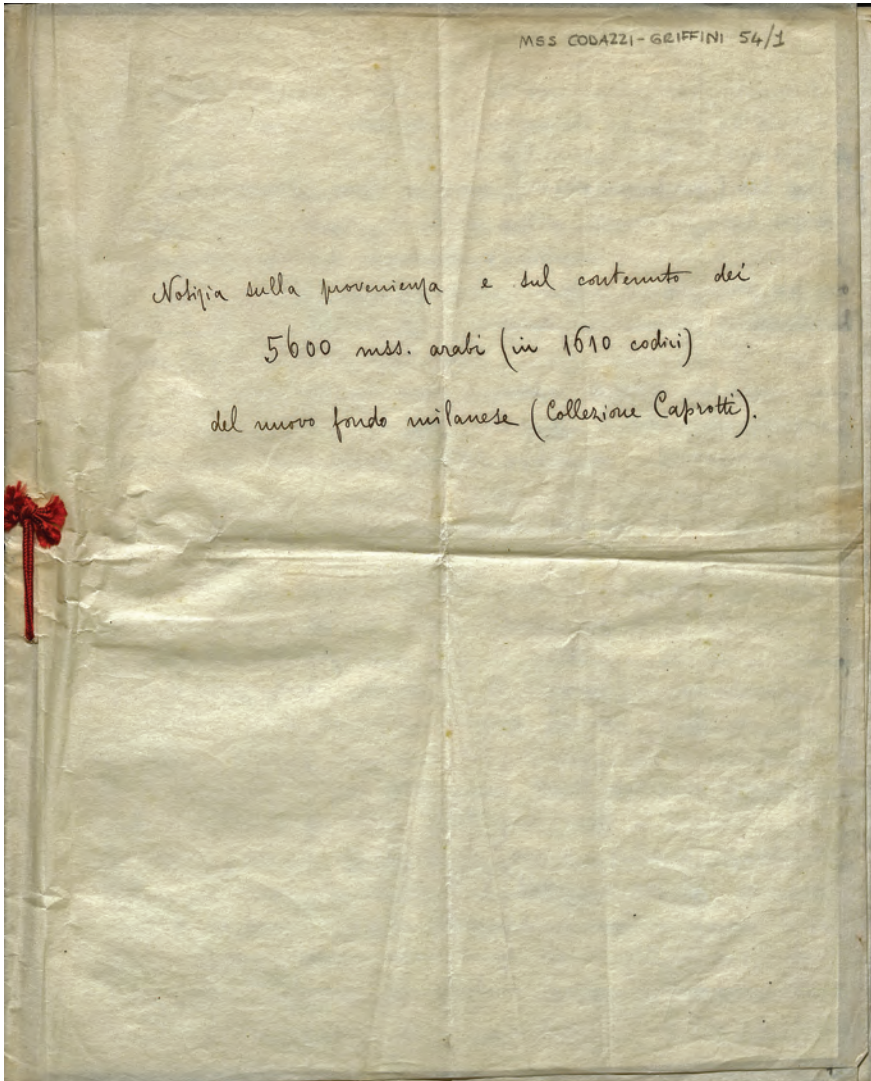 MSS CODAZZI-GRIFFINI 54/1
Notizia sulla provenienza e sul contenuto dei
5600 mss. arabi (in 1610 codici)
del nuovo fondo milanese (Collezione Caprotti).